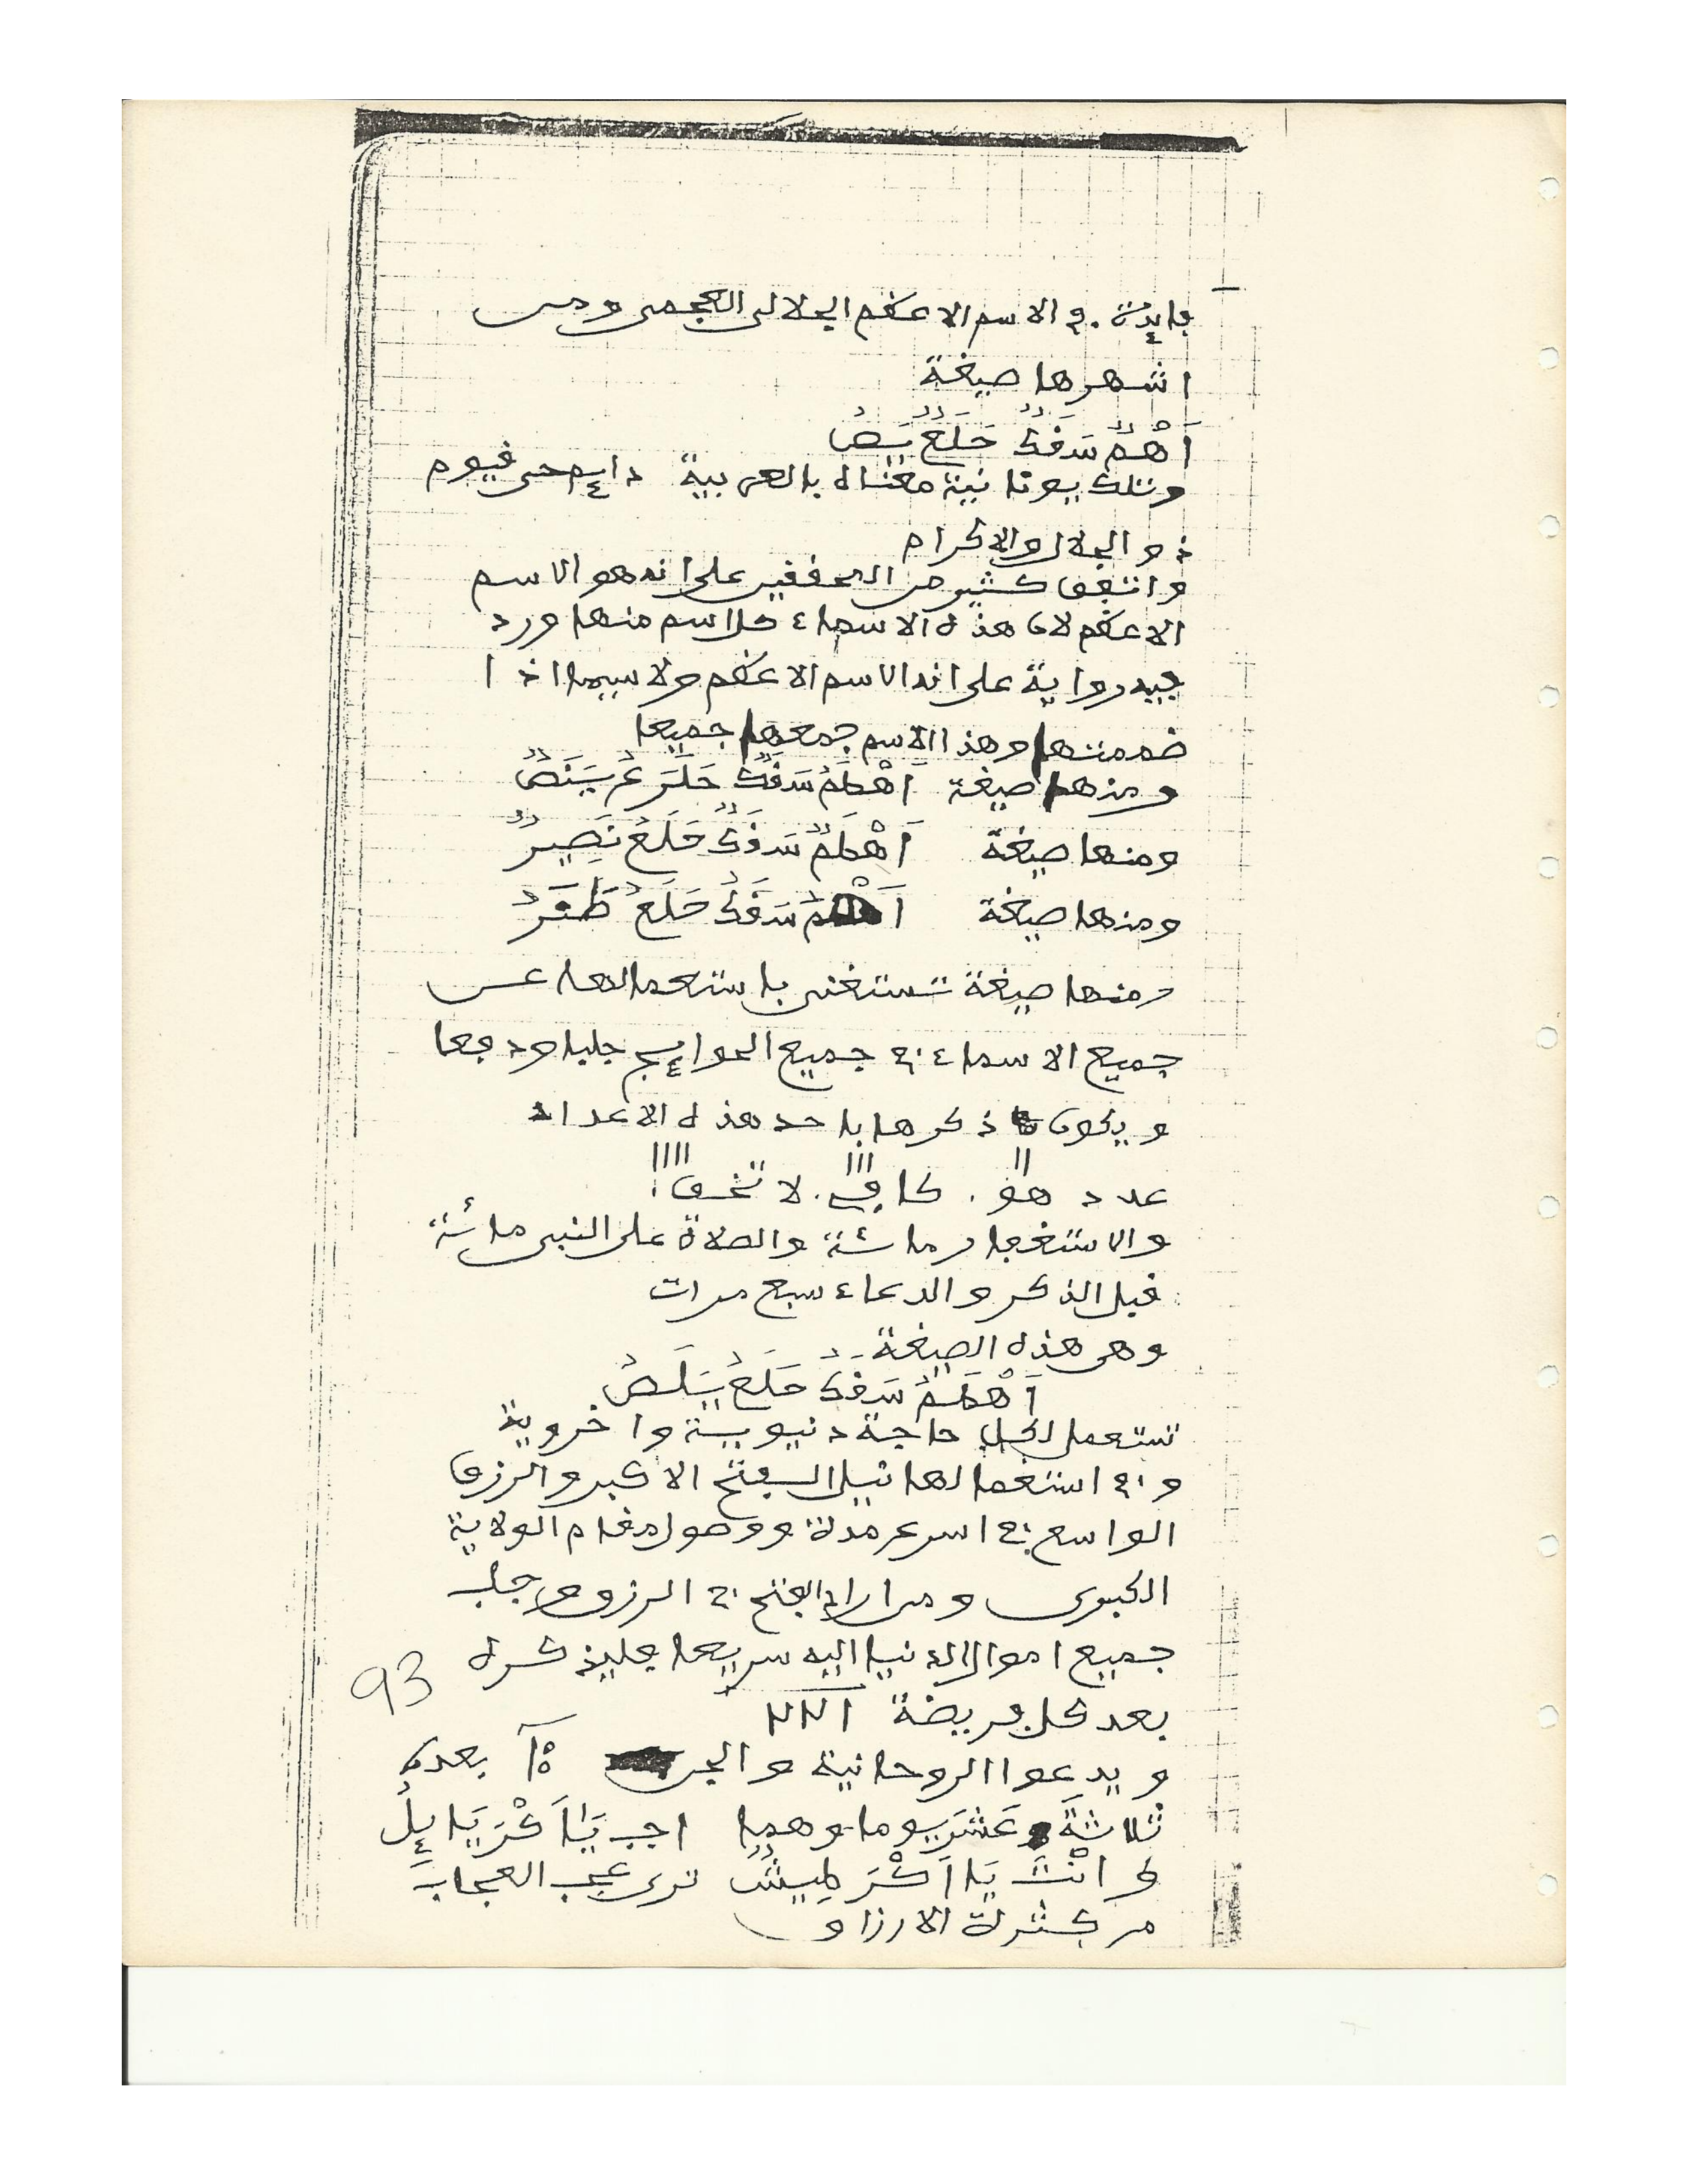 فايدة في الاسم الاعظم الجلالى العجمى ومن
اشهرها صيغة
اَهْمٌ سَقَكٌ حَلَعٌ يَصٌ
وتلك يونانية معناه بالعربية دايم حى قيوم
ذو الجلال والاكرام
واتفق كثير من المحققين على انه هو الاسم
الاعظم لان هذه الاسماء كل اسم منها ورد
فيه رواية على انه الاسم الاعظم ولا سيما اذا
ضممتها وهذا الاسم جمعها جميعا
ومنها صيغة اَهْطَمٌ سَقَكٌ حَلَعٌ يَنَصٌ
ومنها صيغة اَهْطَمٌ سَقَكٌ حَلَعٌ نَصِيرٌ
ومنها صيغة سَقَكٌ حَلَعٌ
ومنها صيغة تستغنى باستعمالها عن
جميع الاسماء في جميع الحوايج جلبا ودفعا
ويكون ذكرها باحد هذه الاعداد
عدد هو . كافي . لا تخف
والاستغفار مائة والصلاة على النبى مائة
قبل الذكر والدعاء سبع مرات
وهى هذه الصيغة
اَهْطَمٌ سَقَكٌ حَلَعٌ يَلَصٌ
تستعمل لكل حاجة دنيوية واخروية
وفي استعمالها نيل الفتح الاكبر والرزق
الواسع في اسرع مدة ووصول مقام الولاية
الكبرى ومن اراد الفتح في الرزق وجلب
جميع اموال الدنيا اليه سريعا فليذكره
93
بعد كل فريضة
ويدعوا الروحانية والجن بعده
ثلاثة عَشَرَ يوما وهما اجب يَا اَكْرَيَايِلُ
وَانْتَ يَا ترى عجب العجاب
من كثرة الارزاق